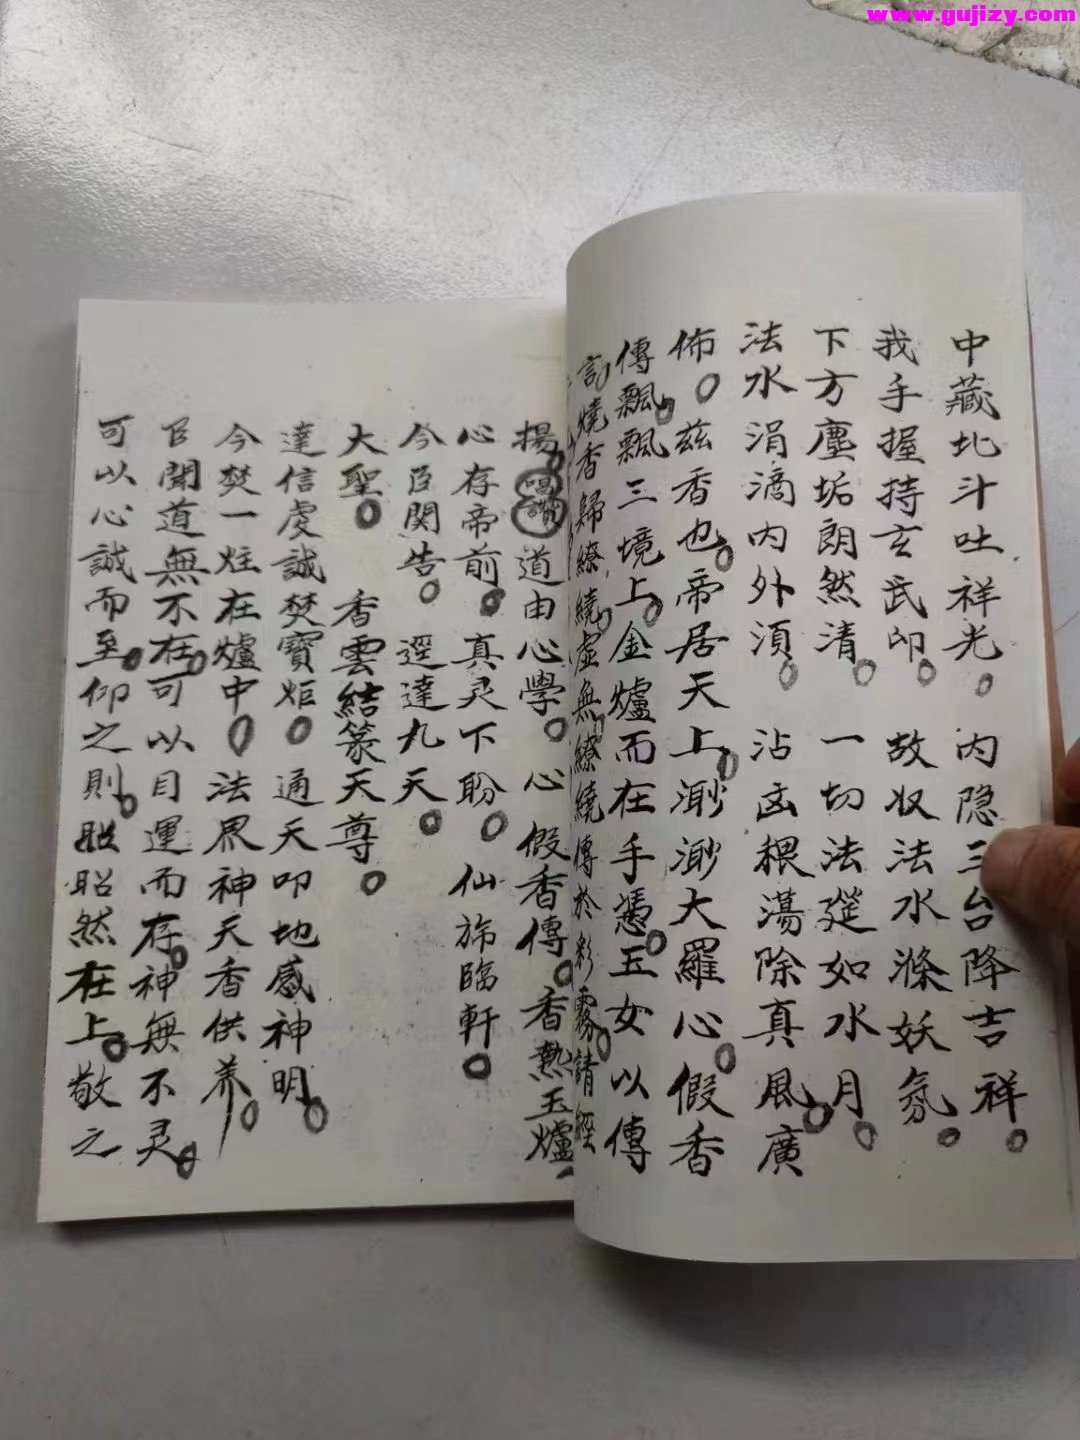 www.gujizy.com
中藏北斗吐祥光。内隐三台降吉祥。
我手握持玄武印。故奴法水滌妖氛。
下方塵垢朗然清。一切法筵如水月。
法水涓滴内外湏。沾凾稞蕩除真風。廣
佈。兹香也。帝居天上。渺渺大羅心。假香
傳飄。飄三境上。金爐而在手。憑玉女以傳
言。燒香歸繚繞。虛無繚繞。傳於彩霧。請經
揚。唱讚道由心學。心假香傳。香熱玉爐。
心存帝前。真灵下盼。仙斾臨軒。
今臣関告。逕達九天。
大聖。香雲結篆天尊。
達信虔誠焚寶炬。通天叩地感神明。
今焚一炷在爐中。法界神天香供养。
臣聞道無不在。可以目運而存。神無不灵。
可以心誠而至。仰之則。昭昭然在上。敬之